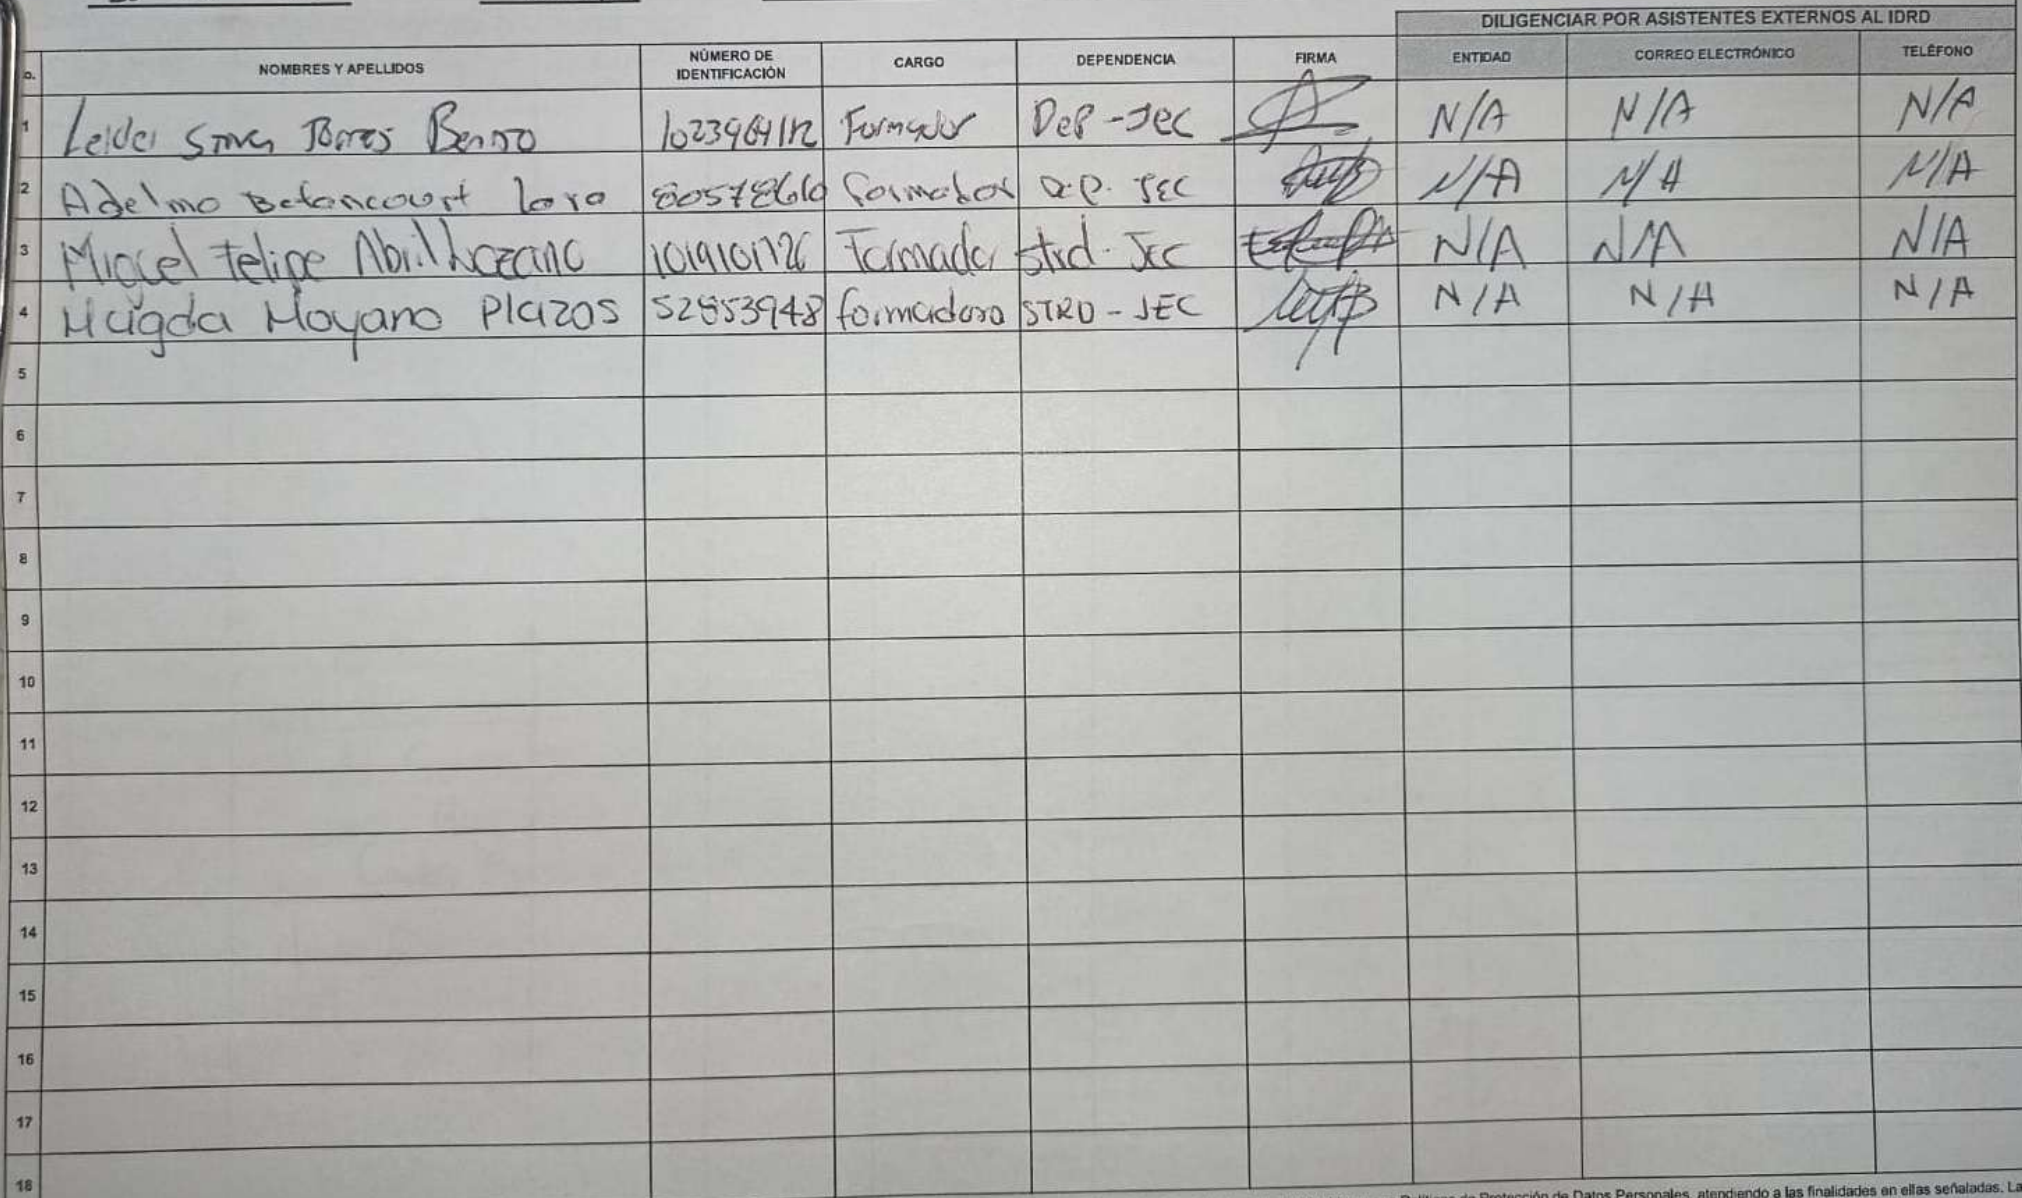 DILIGENCIAR POR ASISTENTES EXTERNOS AL IDRD
o. NOMBRES Y APELLIDOS NÚMERO DE IDENTIFICACIÓN CARGO DEPENDENCIA FIRMA ENTIDAD CORREO ELECTRÓNICO TELÉFONO
1 Torres Formador Dep - Jec N/A N/A N/A
2 Adelmo Betancourt formador JEC N/A N/A N/A
3 Felipe Abril Formador Strd - Jec N/A N/A N/A
4 Magda Moyano Plazos 52853948 formadora STRD - JEC N/A N/A N/A
5
6
7
8
9
10
11
12
13
14
15
16
17
18
de Protección de Datos Personales, atendiendo a las finalidades en ellas señaladas. La